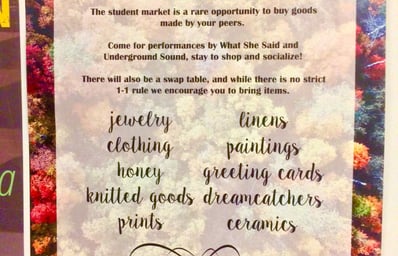 The student market is a rare opportunity to buy goods
made by your peers.
Come for performances by What She Said and
Underground Sound, stay to shop and socialize!
There will also be a swap table, and while there is no strict
1-1 rule we encourage you to bring items.
jewelry linens
clothing paintings
honey greeting cards
knitted goods dreamcatchers
prints ceramics